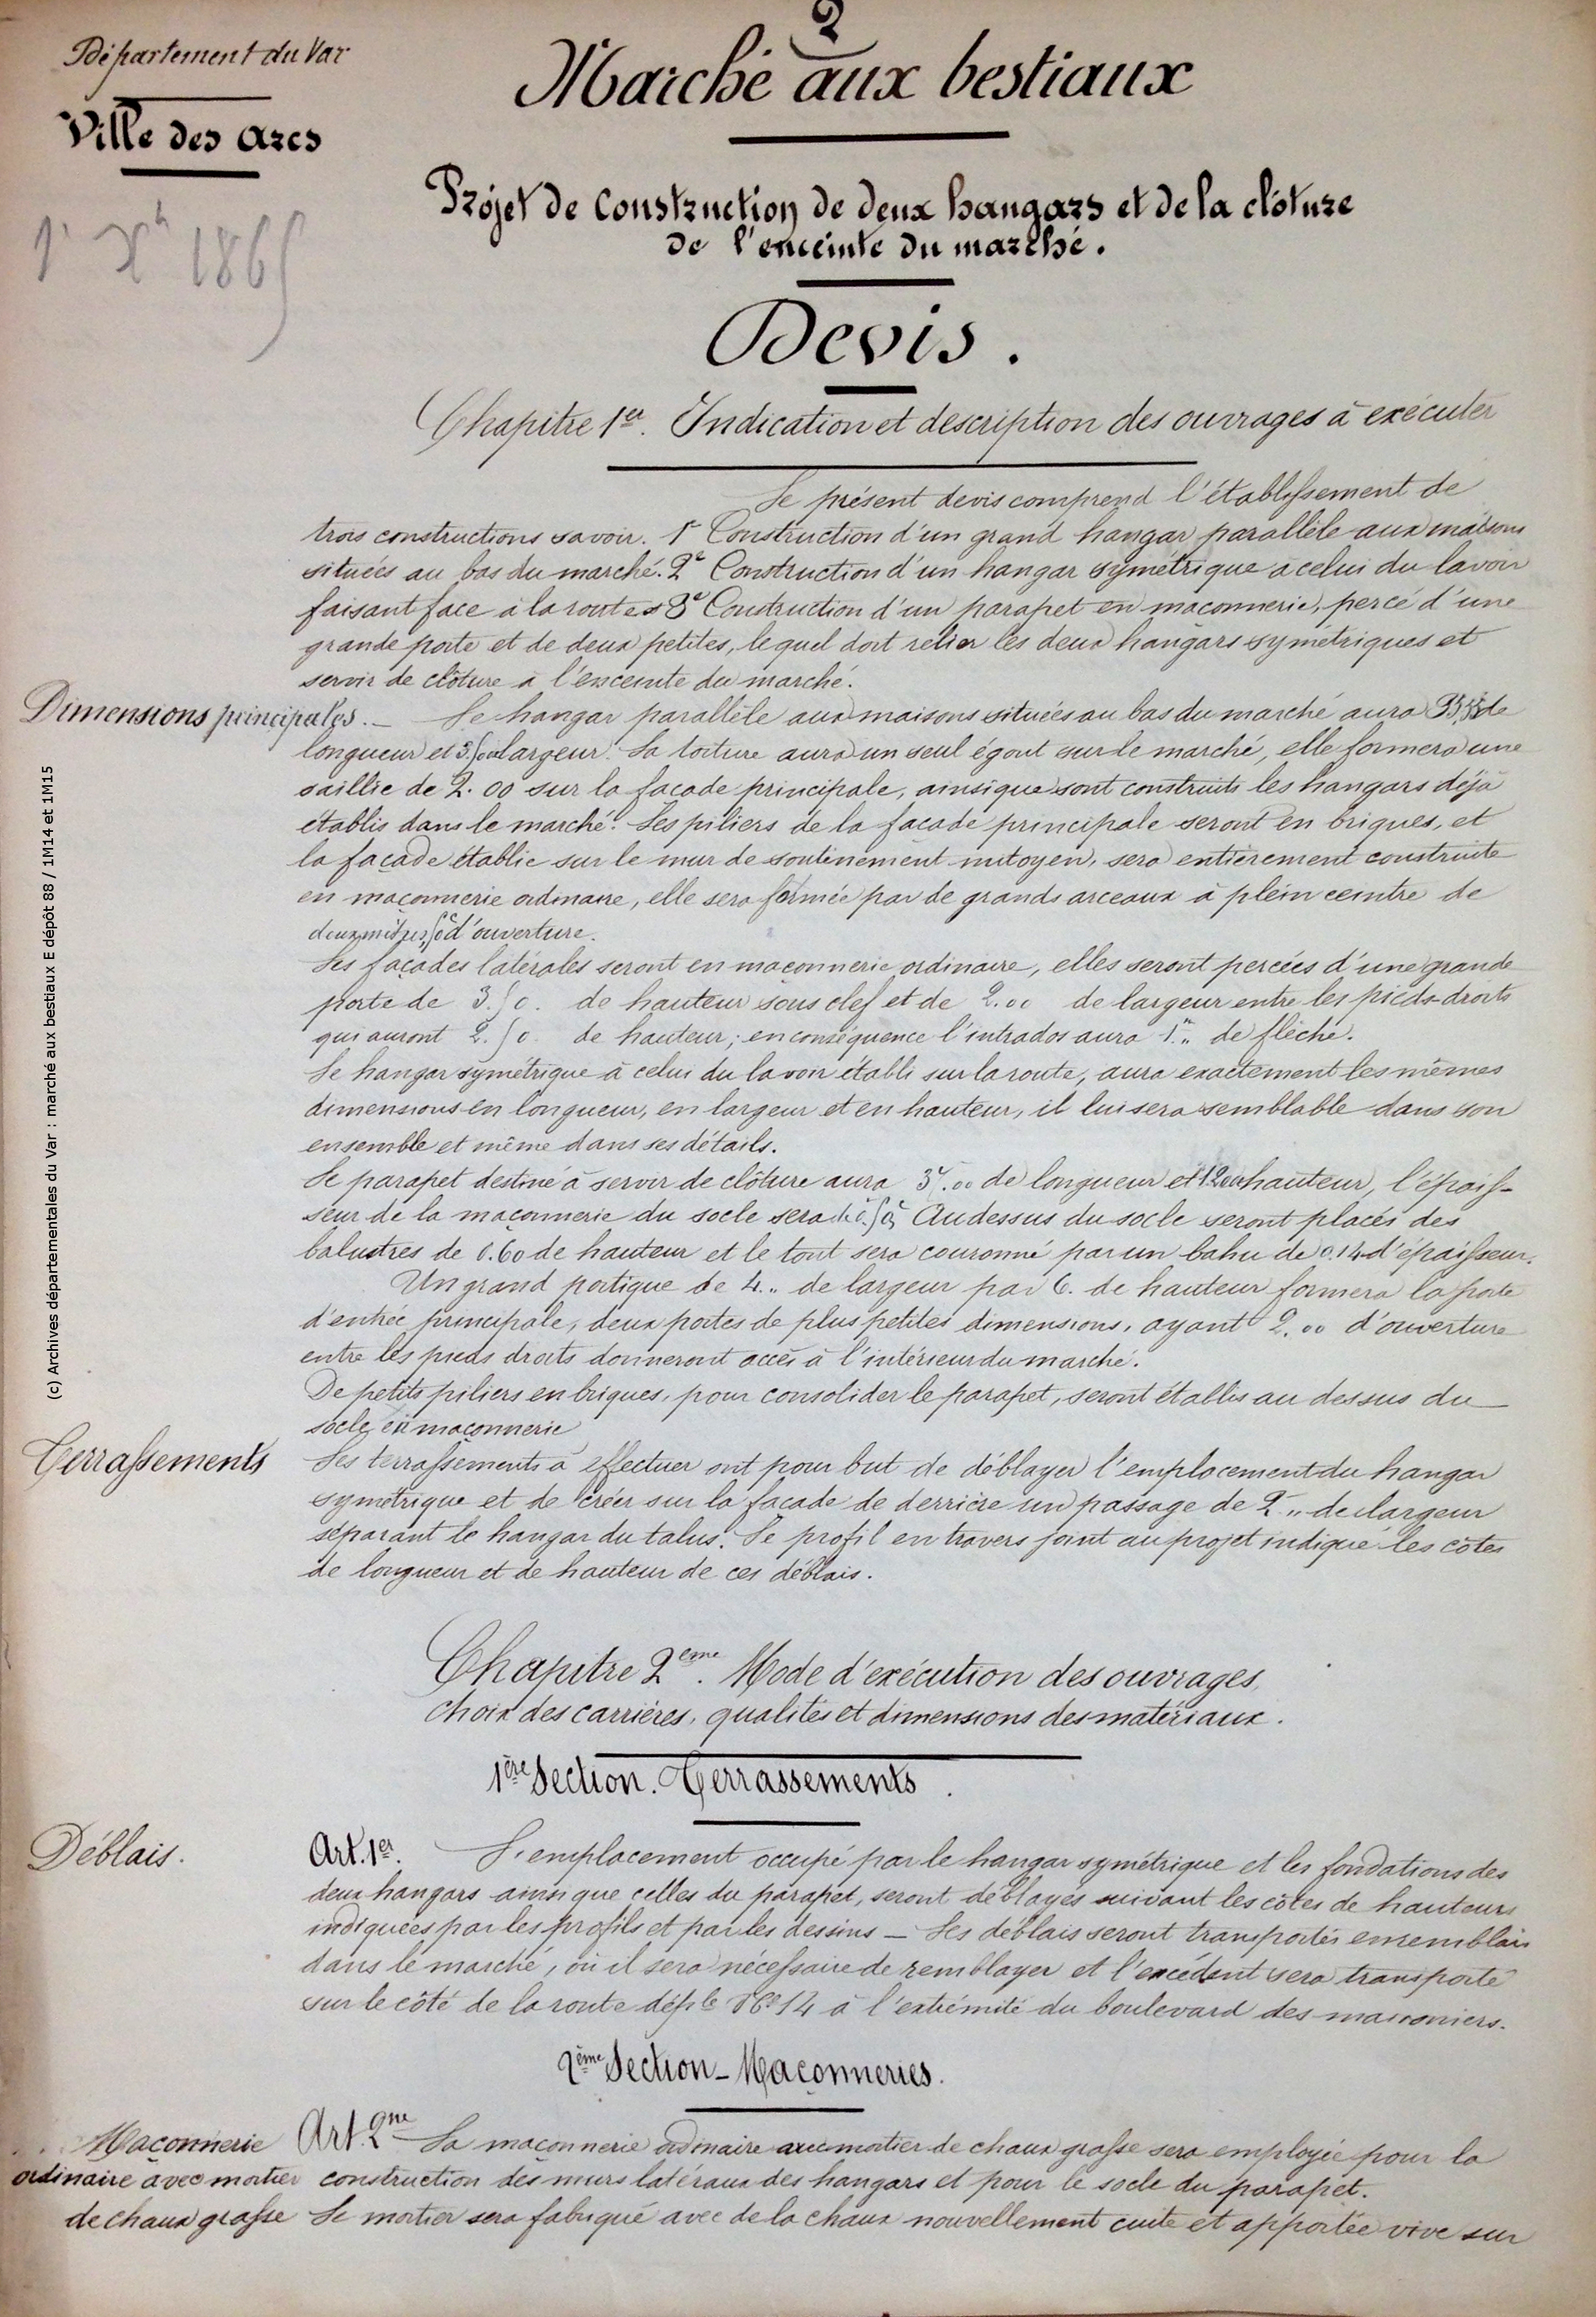 2
Département du Var
Ville des Arcs
1er Xbre 1865
Marché aux bestiaux
Projet de Construction de deux hangars et de la clôture
de l'enceinte du marché.
Devis.
Chapitre 1er. Indication et description des ouvrages à exécuter
Le présent devis comprend l'établissement de
trois constructions savoir. 1° Construction d'un grand hangar parallèle aux maisons
situées au bas du marché. 2° Construction d'un hangar symétrique à celui du lavoir
faisant face à la route 3° Construction d'un parapet en maçonnerie, percé d'une
grande porte et de deux petites, lequel doit relier les deux hangars symétriques et
servir de clôture à l'enceinte du marché.
Dimensions principales. _ Le hangar parallèle aux maisons situées au bas du marché aura de
longueur et largeur. La toiture aura un seul égout sur le marché, elle formera une
saillie de 2.00 sur la façade principale, ainsi que sont construits les hangars déjà
établis dans le marché. Les piliers de la façade principale seront en briques, et
la façade établie sur le mur de soutinement mitoyen, sera entièrement construite
en maçonnerie ordinaire, elle sera formée par de grands arceaux à plein ceintre de
deux mètres 50 d'ouverture.
Les façades latérales seront en maçonnerie ordinaire, elles seront percées d'une grande
porte de 3.50. de hauteur sous clef et de 2.00 de largeur entre les pieds-droits
qui auront 2.50 de hauteur; en conséquence l'intrados aura 1m,, de flèche.
Le hangar symétrique à celui du lavoir établi sur la route, aura exactement les mêmes
dimensions en longueur, en largeur et en hauteur, il lui sera semblable dans son
ensemble et même dans ses détails.
Le parapet destiné à servir de clôture aura de longueur et 1.20 hauteur, l'épais-
seur de la maçonnerie du socle sera de 0.50, Au dessus du socle seront placés des
balustres de 0.60 de hauteur et le tout sera couronné par un bahu de 0.14 d'épaisseur.
Un grand portique de 4.,, de largeur par 6. de hauteur formera la porte
d'entrée principale, deux portes de plus petites dimensions, ayant 2.00 d'ouverture
entre les pieds droits donneront accès à l'intérieur du marché.
De petits piliers en briques, pour consolider le parapet, seront établis au dessus du
socle en maçonnerie
Terrassements Les terrassements à effectuer ont pour but de déblayer l'emplacement du hangar
symétrique et de créer sur la façade de derrière un passage de 2.,, de largeur
séparant le hangar du talus. Le profil en travers joint au projet indique les côtes
de longueur et de hauteur de ces déblais.
Chapitre 2eme. Mode d'exécution des ouvrages,
choix des carrières, qualités et dimensions des matériaux.
1ère Section. Terrassements.
Déblais. Art. 1er. L'emplacement occupé par le hangar symétrique et les fondations des
deux hangars ainsi que celles du parapet, seront déblayés suivant les côtes de hauteurs
indiquées par les profils et par les dessins _ Les déblais seront transportés en remblais
dans le marché, où il sera nécessaire de remblayer et l'excédent sera transporté
sur le côté de la route déple No 14 à l'extrémité du boulevard des marronniers.
2ème Section _ Maçonneries.
Maçonnerie
ordinaire avec mortier
de chaux grasse
Art. 2me La maçonnerie ordinaire avec mortier de chaux grasse sera employée pour la
construction des murs latéraux des hangars et pour le socle du parapet.
Le mortier sera fabriqué avec de la chaux nouvellement cuite et apportée vive sur
(c) Archives départementales du Var : marché aux bestiaux E dépôt 88 / 1M14 et 1M15